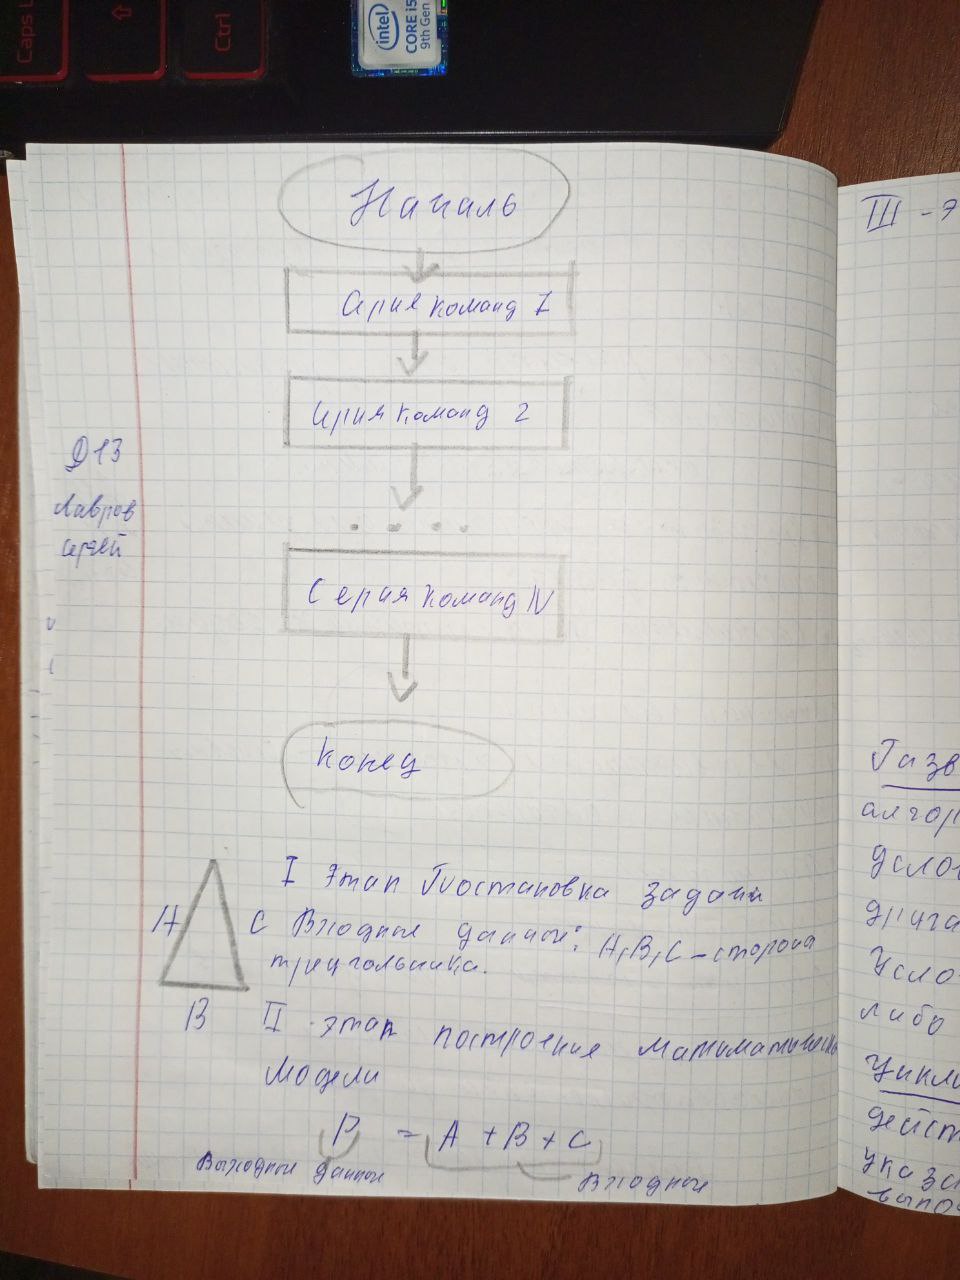 Caps L
Ctrl
intel
CORE i5
9th Gen
Началь
Серия команд 1
Серия команд 2
Д13
Лавров
Сергей
. . . .
Серия команд N
Конец
I Этап Постановка задачи
A
C Входные данные: A, B, C – сторона
треугольника.
B
II этап построение матиматическ
модели
P = A + B + C
Выходные данные
Входные
III - э
Разв
алгор
Усло
друга
Усло
либо
Цикли
дейст
указа
выпо